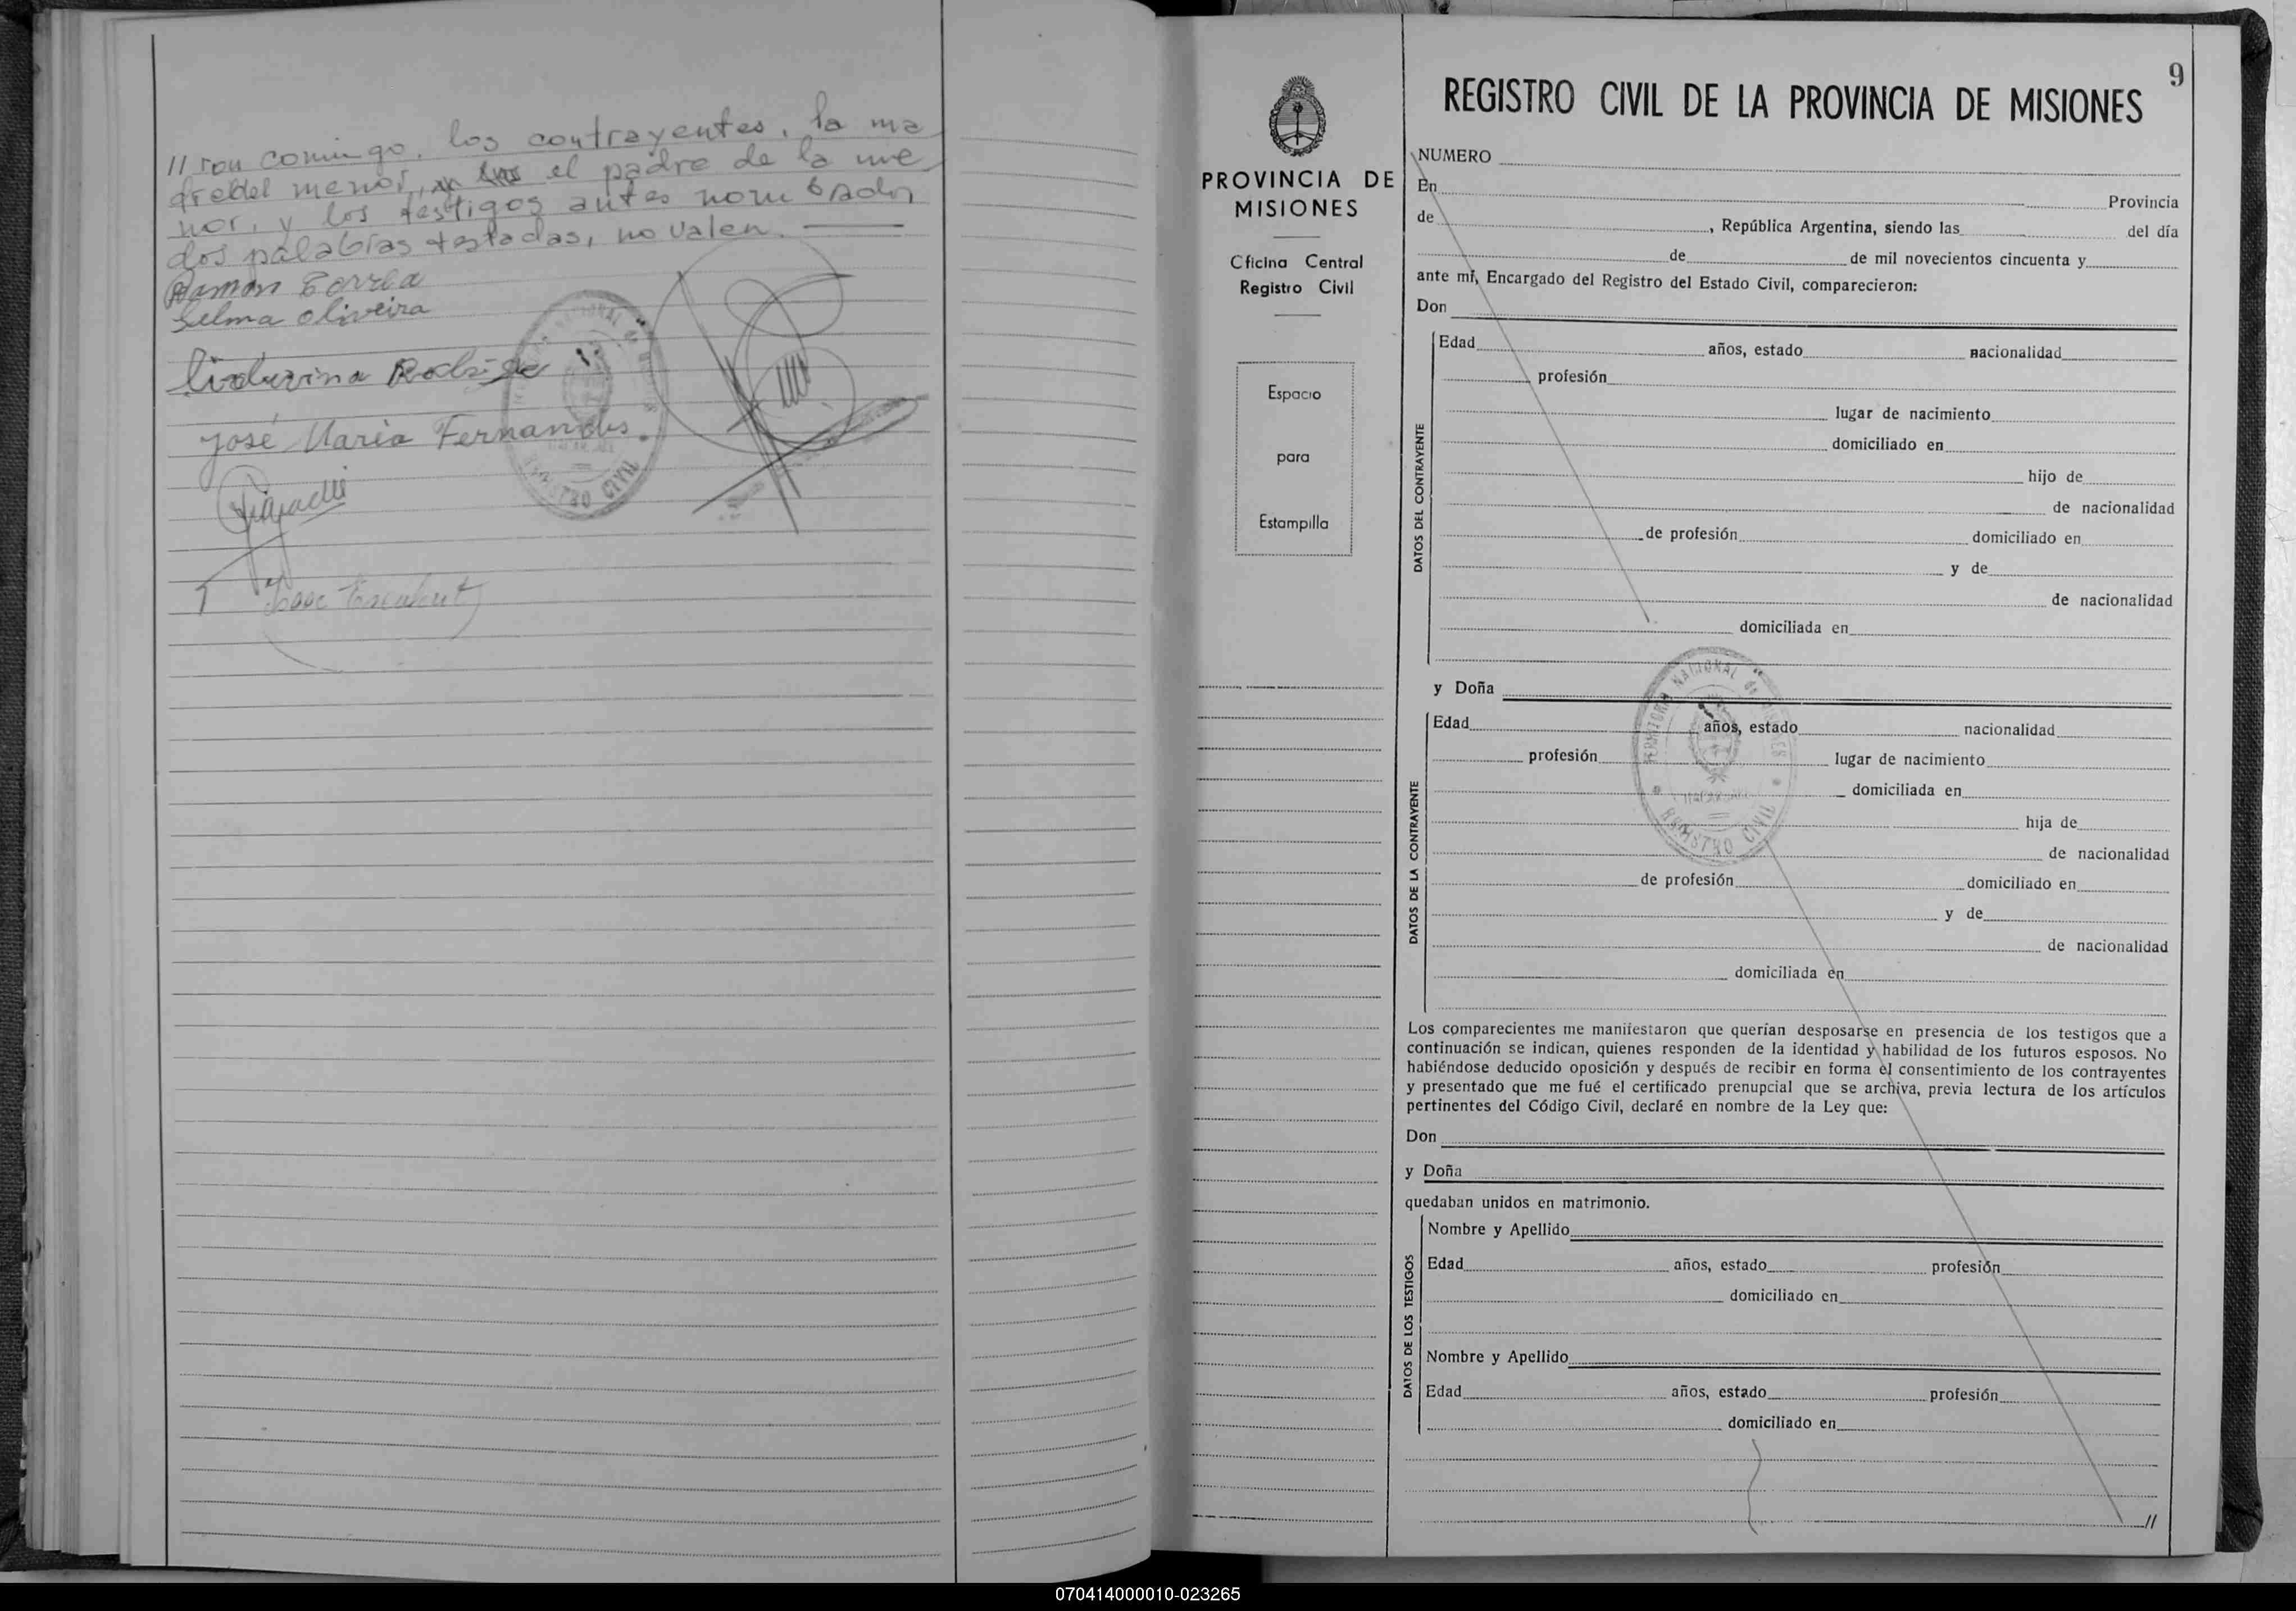 // ron conmigo, los contrayentes, la ma
dre del menor, el padre de la me
nor, y los testigos antes nombrados,
dos palabras testadas, no valen.
Ramon Correa
Selma Oliveira
Rodrigue
José María Fernandes
REGISTRO CIVIL
9
PROVINCIA DE
MISIONES
Oficina Central
Registro Civil
Espacio
para
Estampilla
REGISTRO CIVIL DE LA PROVINCIA DE MISIONES
NUMERO
En Provincia
de , República Argentina, siendo las del día
de de mil novecientos cincuenta y
ante mí, Encargado del Registro del Estado Civil, comparecieron:
Don
DATOS DEL CONTRAYENTE
Edad años, estado nacionalidad
profesión
lugar de nacimiento
domiciliado en
hijo de
de nacionalidad
de profesión domiciliado en
y de
de nacionalidad
domiciliada en
y Doña
TERRITORIO NACIONAL de MISIONES
REGISTRO CIVIL
DATOS DE LA CONTRAYENTE
Edad años, estado nacionalidad
profesión lugar de nacimiento
domiciliada en
hija de
de nacionalidad
de profesión domiciliado en
y de
de nacionalidad
domiciliada en
Los comparecientes me manifestaron que querían desposarse en presencia de los testigos que a
continuación se indican, quienes responden de la identidad y habilidad de los futuros esposos. No
habiéndose deducido oposición y después de recibir en forma el consentimiento de los contrayentes
y presentado que me fué el certificado prenupcial que se archiva, previa lectura de los artículos
pertinentes del Código Civil, declaré en nombre de la Ley que:
Don
y Doña
quedaban unidos en matrimonio.
DATOS DE LOS TESTIGOS
Nombre y Apellido
Edad años, estado profesión
domiciliado en
Nombre y Apellido
Edad años, estado profesión
domiciliado en
//
070414000010-023265